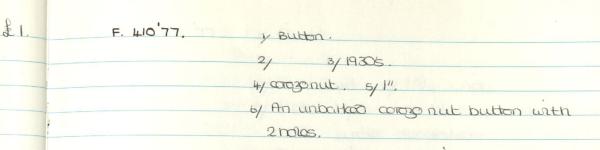 £1. F. 410'77. 1/ Button.
2/ 3/ 1930s.
4/ corozo nut. 5/ 1".
6/ An unbarked corozo nut button with
2 holes.